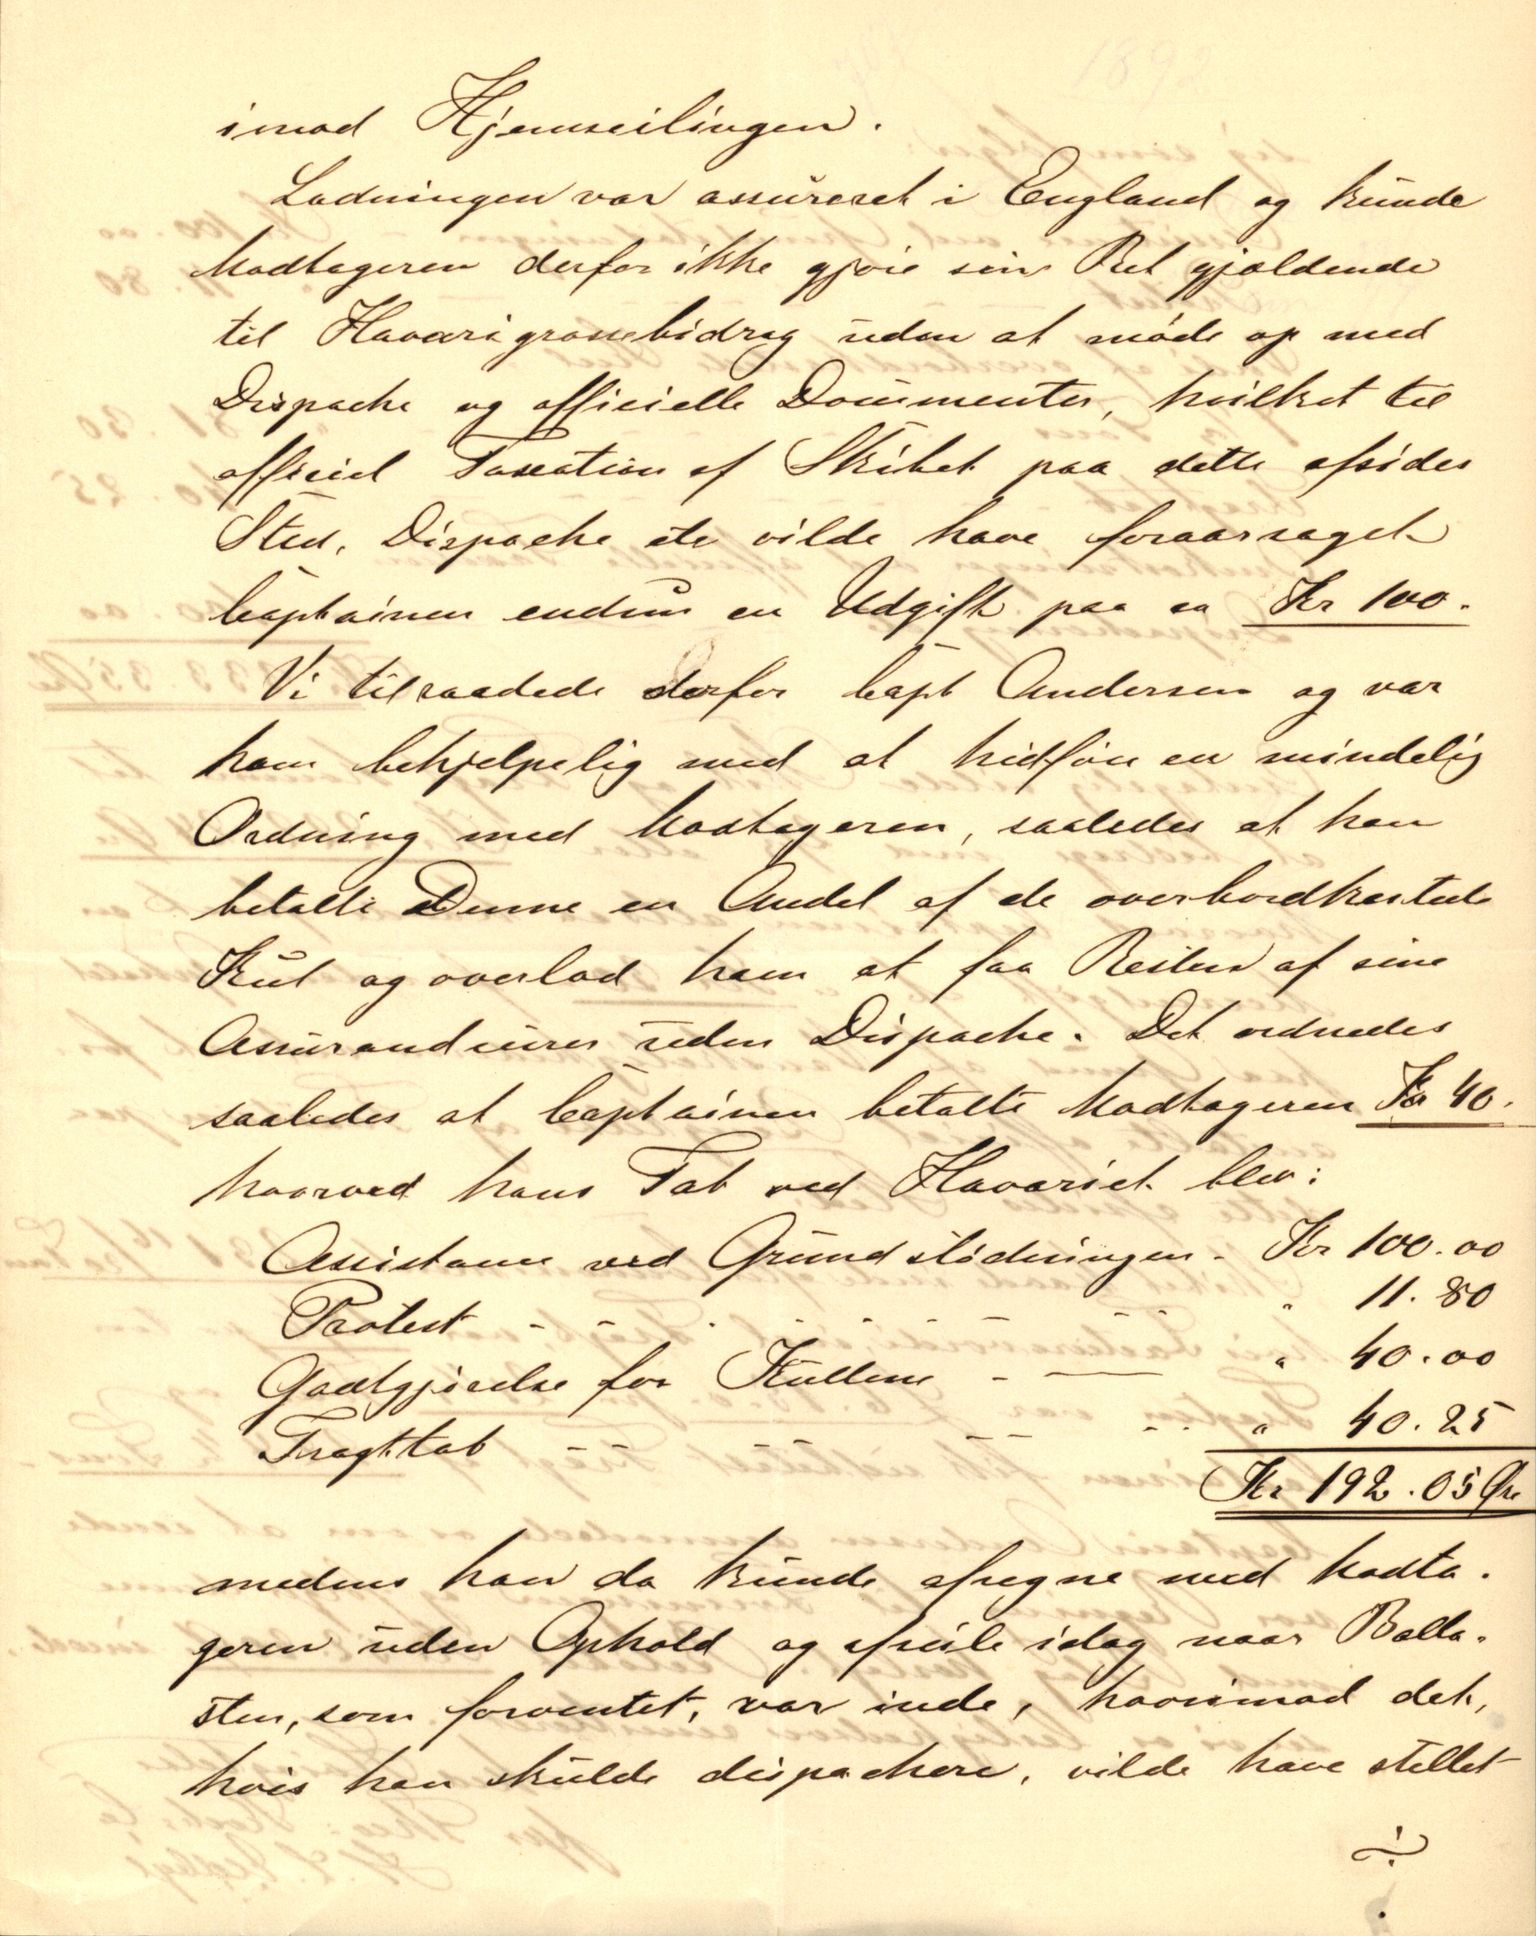 imod Hjemseilingen.
Ladningen var assureret i England og kunde
Modtageren derfor ikke gjøre sin Ret gjældende
til Havarigrossebidrag uden at møde op med
Dispache og officielle Documenter, hvilket til
officiel Taxation af Skibet paa dette afsides
Sted, Dispache etc vilde have foraarsaget
Captainen endnu en Udgift paa ca Kr 100.
Vi tilraadede derfor Capt Andersen og var
ham behjelpelig med at hidføre en mindelig
Ordning med Modtageren, saaledes at han
betalte Denne en Andel af de overbordkastede
Kul og overlod ham at faa Resten af sine
Assurandeurer uden Dispache. Det ordnedes
saaledes at Captainen betalte Modtageren Kr 40.
hvorved hans Tab ved Havariet blev:
Assistance ved Grundstödningen - Kr 100.00
Protest - - - - - - - " 11.80
Godtgjörelse for Kullene - — " 40.00
Fragttab - - - - " 40.25
Kr 192.05 Øre
medens han da kunde afregne med Modta-
geren uden Ophold og afseile idag naar Balla-
sten, som forventet, var inde, hvorimod det,
hvis han skulde dispachere, vilde have stillet
÷